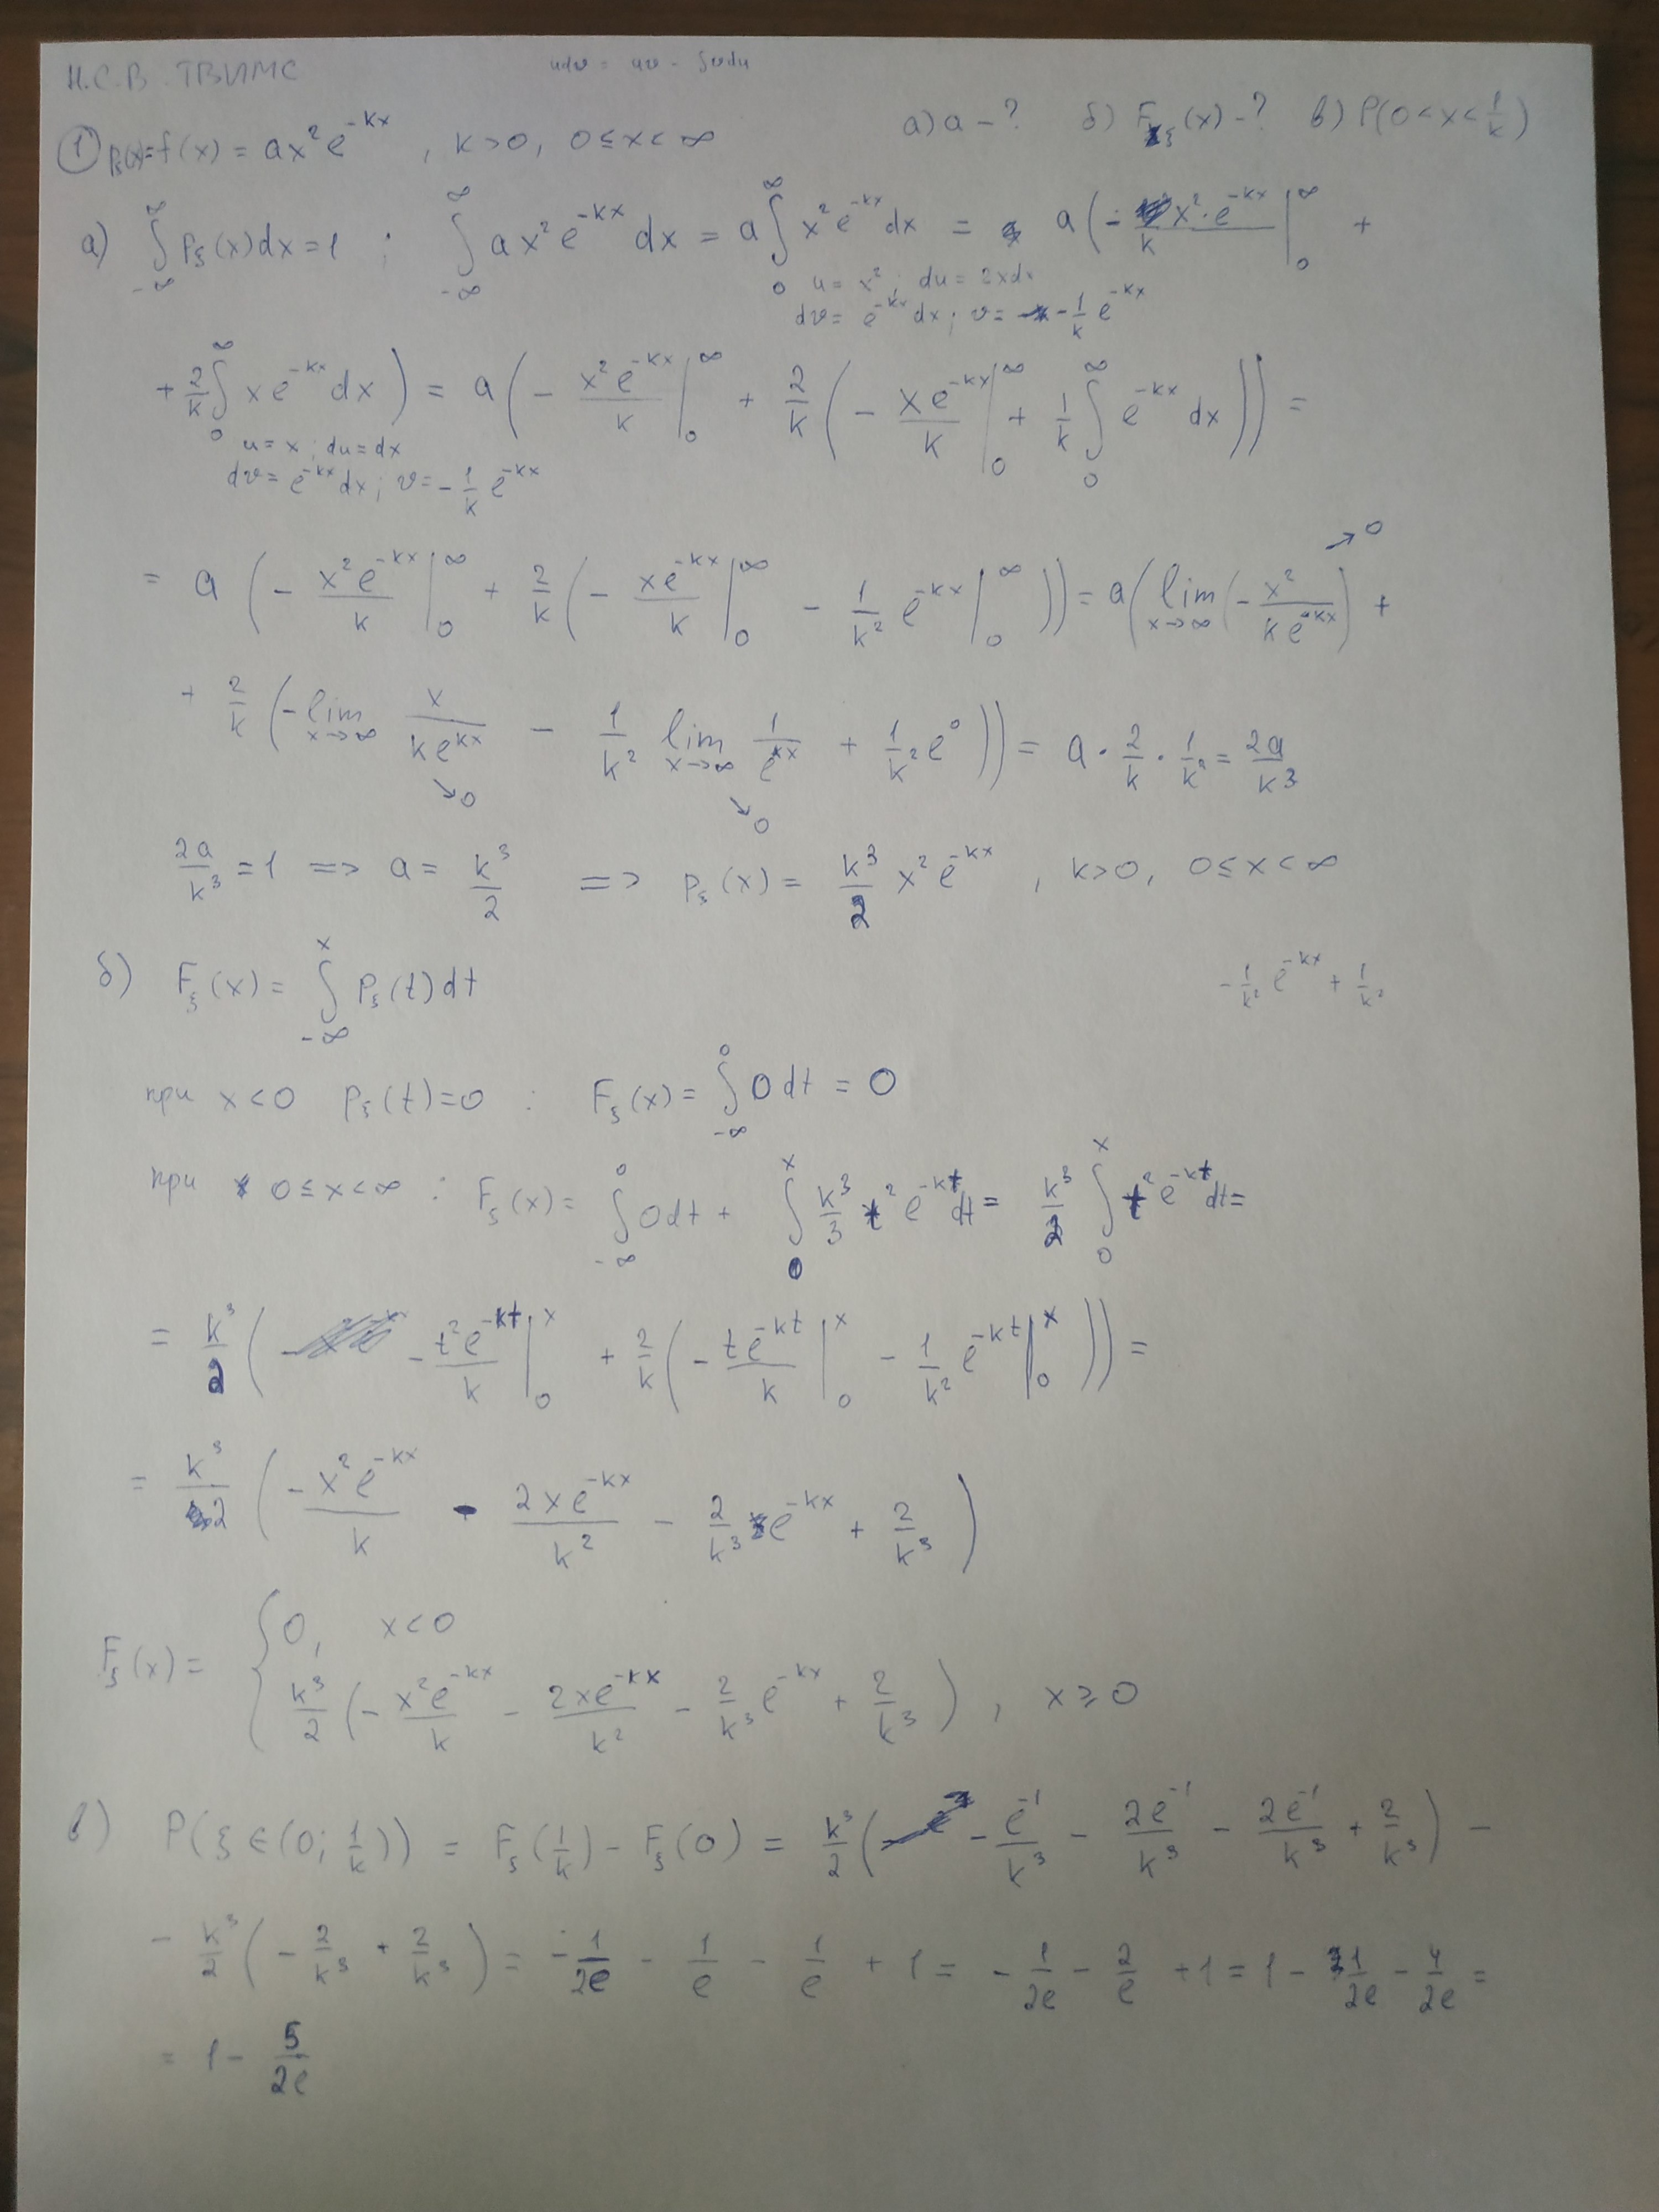 Н.С.В ТВИМС
udv = uv - ∫vdu
① p_ξ(x)=f(x) = ax²e^{-kx} , k>0, 0≤x<∞ а) a-? б) F_ξ(x)-? в) P(0<x<1/k)
а) ∫_{-∞}^{∞} p_ξ(x)dx=1 ; ∫_{-∞}^{∞} ax²e^{-kx}dx = a∫_0^∞ x²e^{-kx}dx = a(- x²·e^{-kx}/k |_0^∞ +
u = x²; du = 2xdx
dv = e^{-kx}dx; v = -1/k e^{-kx}
+ 2/k ∫_0^∞ xe^{-kx}dx) = a(- x²e^{-kx}/k |_0^∞ + 2/k (- xe^{-kx}/k |_0^∞ + 1/k ∫_0^∞ e^{-kx}dx)) =
u = x; du = dx
dv = e^{-kx}dx; v = -1/k e^{-kx}
= a (- x²e^{-kx}/k |_0^∞ + 2/k (- xe^{-kx}/k |_0^∞ - 1/k² e^{-kx} |_0^∞)) = a(lim_{x→∞} (- x²/ke^{kx}) →0 +
+ 2/k (-lim_{x→∞} x/ke^{kx} ↘0 - 1/k² lim_{x→∞} 1/e^{kx} ↘0 + 1/k² e⁰)) = a · 2/k · 1/k² = 2a/k³
2a/k³ = 1 => a = k³/2 => p_ξ(x) = k³/2 x²e^{-kx} , k>0, 0≤x<∞
б) F_ξ(x) = ∫_{-∞}^{x} p_ξ(t)dt
-1/k² e^{-kx} + 1/k²
при x<0 p_ξ(t)=0 : F_ξ(x) = ∫_{-∞}^{0} 0dt = 0
при 0≤x<∞ : F_ξ(x) = ∫_{-∞}^{0} 0dt + ∫_0^x k³/3 t²e^{-kt}dt = k³/2 ∫_0^x t²e^{-kt}dt =
= k³/2 (- t²e^{-kt}/k |_0^x + 2/k (- te^{-kt}/k |_0^x - 1/k² e^{-kt} |_0^x)) =
= k³/2 (- x²e^{-kx}/k - 2xe^{-kx}/k² - 2/k³ e^{-kx} + 2/k³)
F_ξ(x) = { 0, x<0
k³/2 (- x²e^{-kx}/k - 2xe^{-kx}/k² - 2/k³ e^{-kx} + 2/k³) , x≥0
в) P(ξ∈(0; 1/k)) = F_ξ(1/k) - F_ξ(0) = k³/2 (- e^{-1}/k³ - 2e^{-1}/k³ - 2e^{-1}/k³ + 2/k³) -
- k³/2 (- 2/k³ + 2/k³) = - 1/2e - 1/e - 1/e + 1 = - 1/2e - 2/e + 1 = 1 - 1/2e - 4/2e =
= 1 - 5/2e